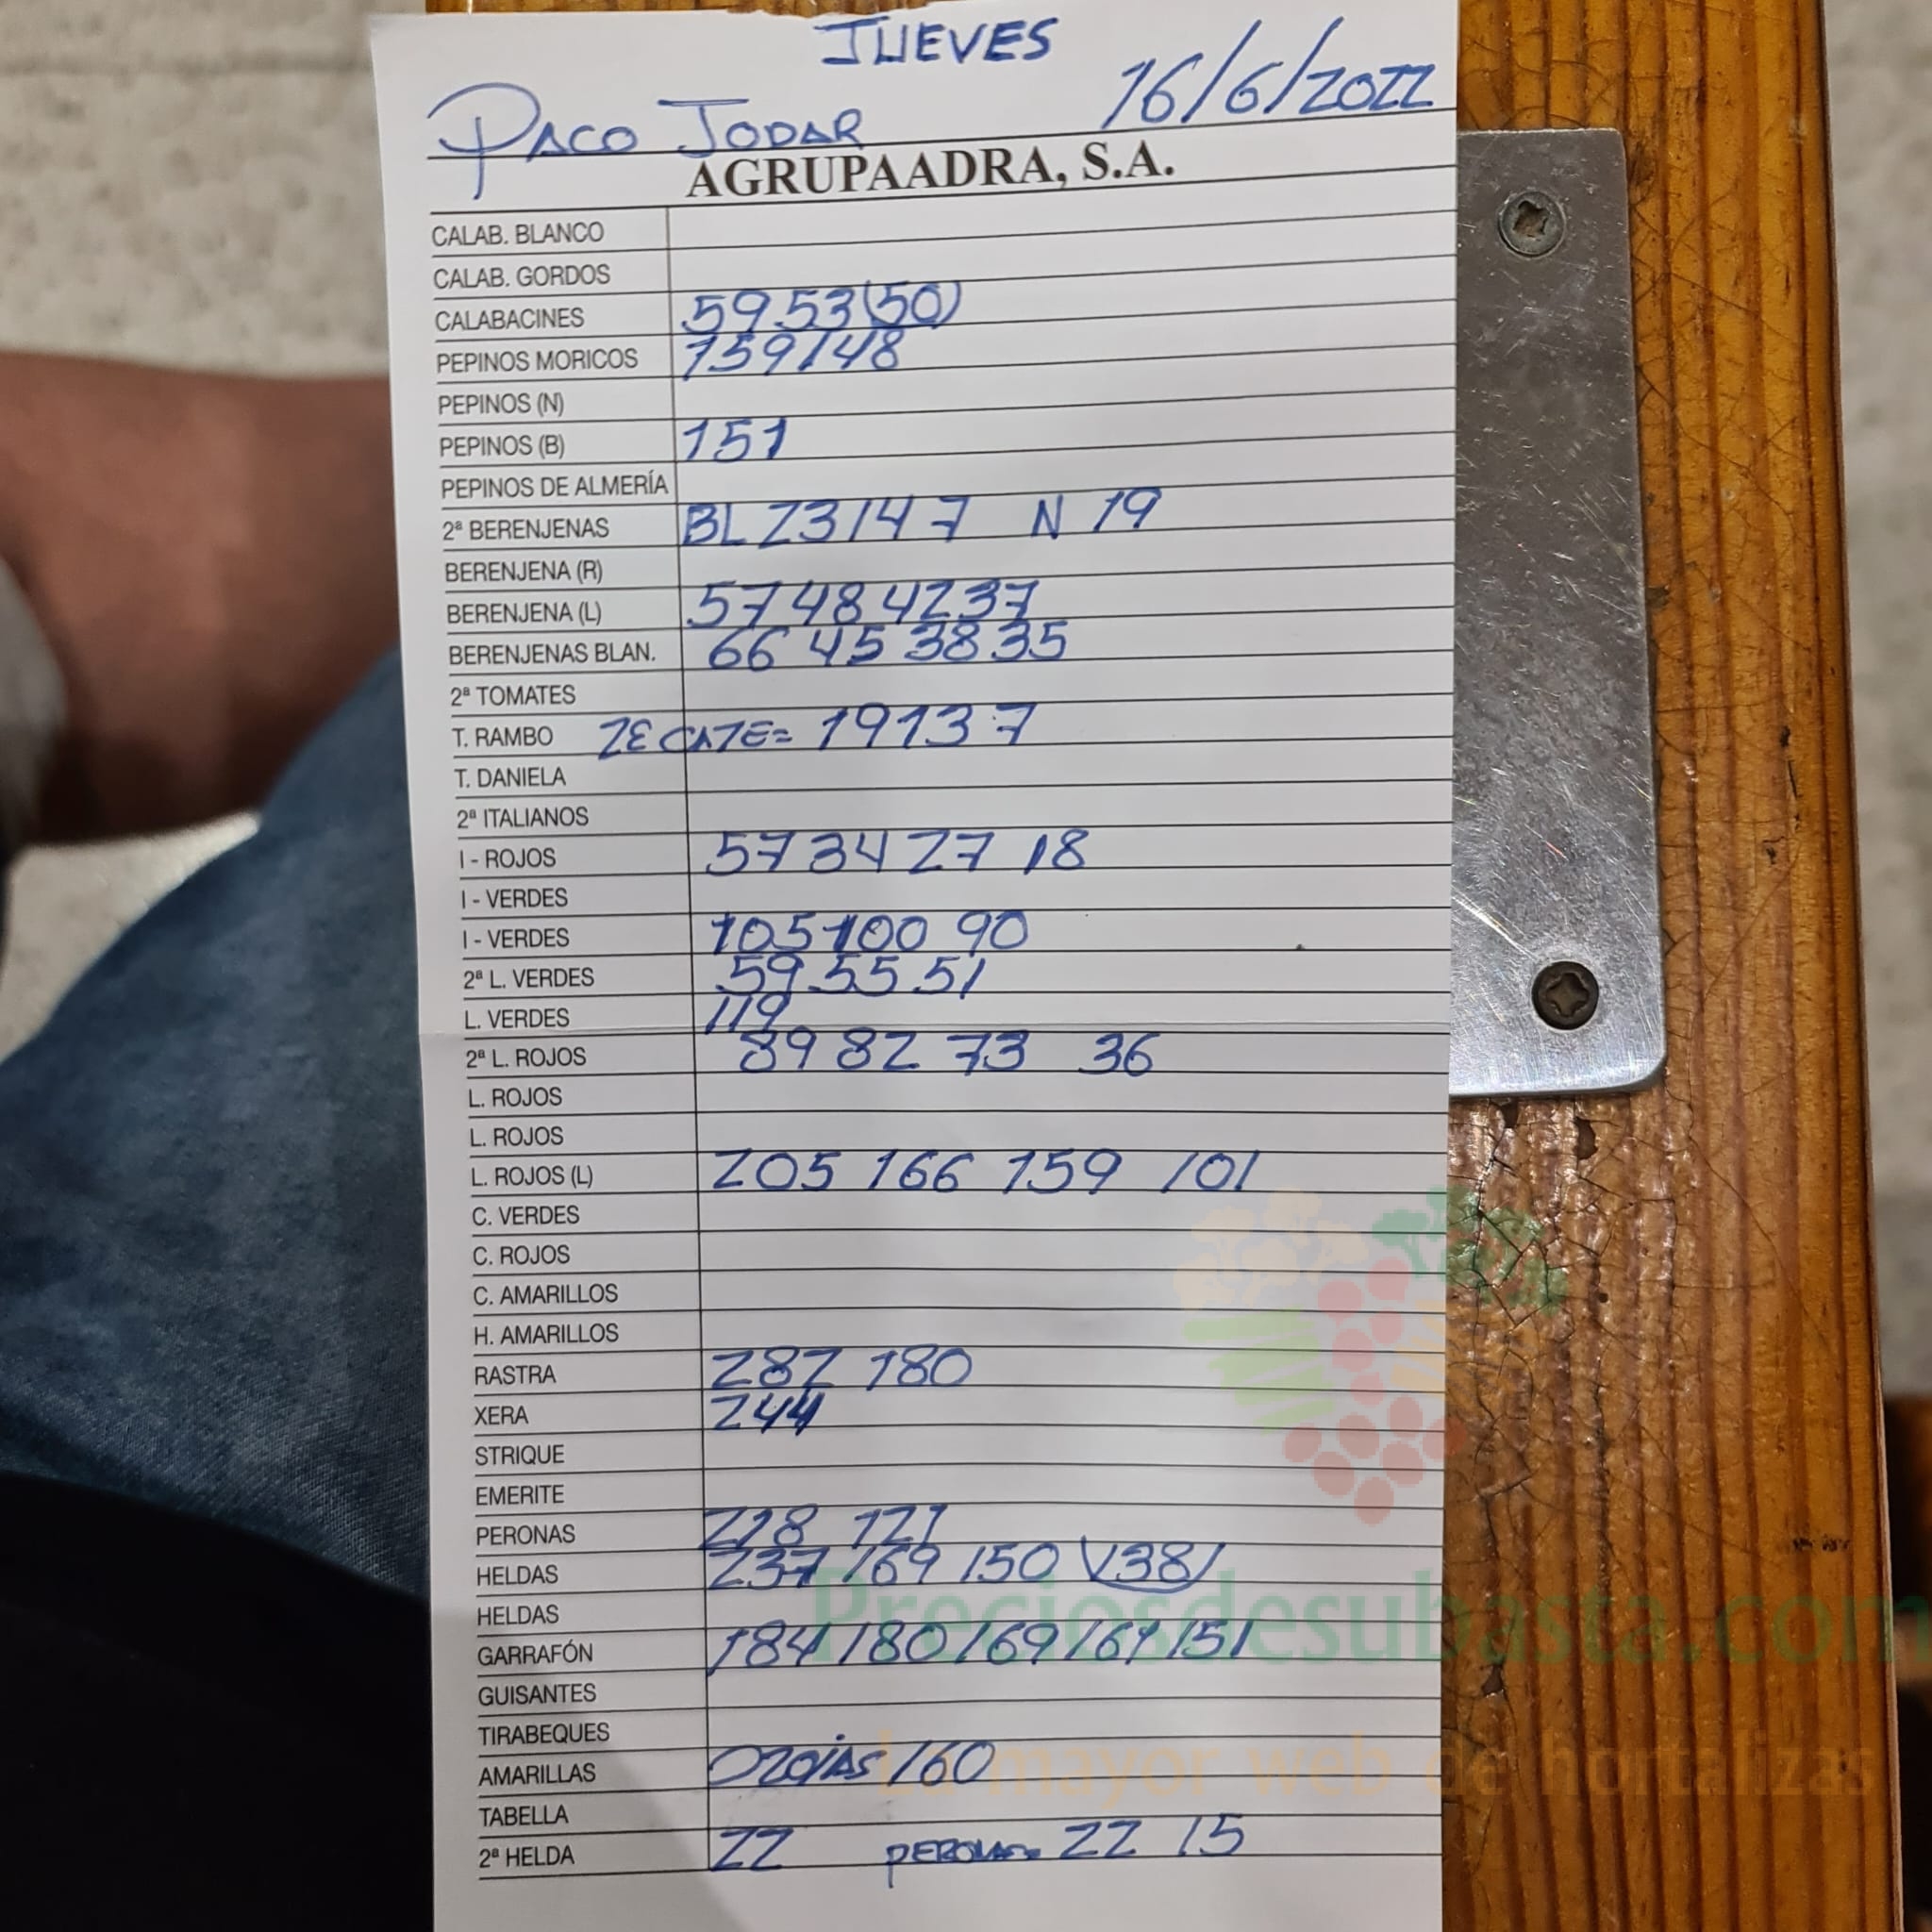 JUEVES
PACO JODAR 16/6/2022
AGRUPAADRA, S.A.
CALAB. BLANCO
CALAB. GORDOS
CALABACINES 59 53 (50)
PEPINOS MORICOS 159 148
PEPINOS (N)
PEPINOS (B) 151
PEPINOS DE ALMERÍA
2ª BERENJENAS BL 23 14 7 N 19
BERENJENA (R)
BERENJENA (L) 57 48 42 37
BERENJENAS BLAN. 66 45 38 35
2ª TOMATES
T. RAMBO 19 13 7
T. DANIELA
2ª ITALIANOS
I - ROJOS 57 34 27 18
I - VERDES
I - VERDES 105 100 90
2ª L. VERDES 59 55 51
L. VERDES 119
2ª L. ROJOS 89 82 73 36
L. ROJOS
L. ROJOS
L. ROJOS (L) 205 166 159 101
C. VERDES
C. ROJOS
C. AMARILLOS
H. AMARILLOS
RASTRA 282 180
XERA 244
STRIQUE
EMERITE
PERONAS 218 121
HELDAS 237 169 150 (138)
HELDAS
GARRAFÓN 184 180 169 161 151
GUISANTES
TIRABEQUES
AMARILLAS 160
TABELLA
2ª HELDA 22 PERONA= 22 15
Preciosdesubasta.com
La mayor web de hortalizas